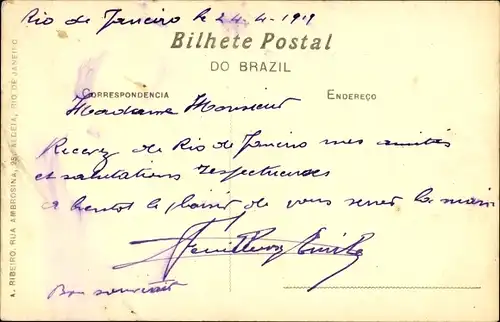 Rio de Janeiro le 24-4-1919
Bilhete Postal
DO BRAZIL
CORRESPONDENCIA
ENDEREÇO
Madame Monsieur
Recevez de Rio de Janeiro mes amitiés
et salutations respectueuses
a bientot le plaisir de vous serrer la main
Emile
Bon souvenir
A. RIBEIRO, RUA AMBROSINA, 25, ALDEIA, RIO DE JANEIRO